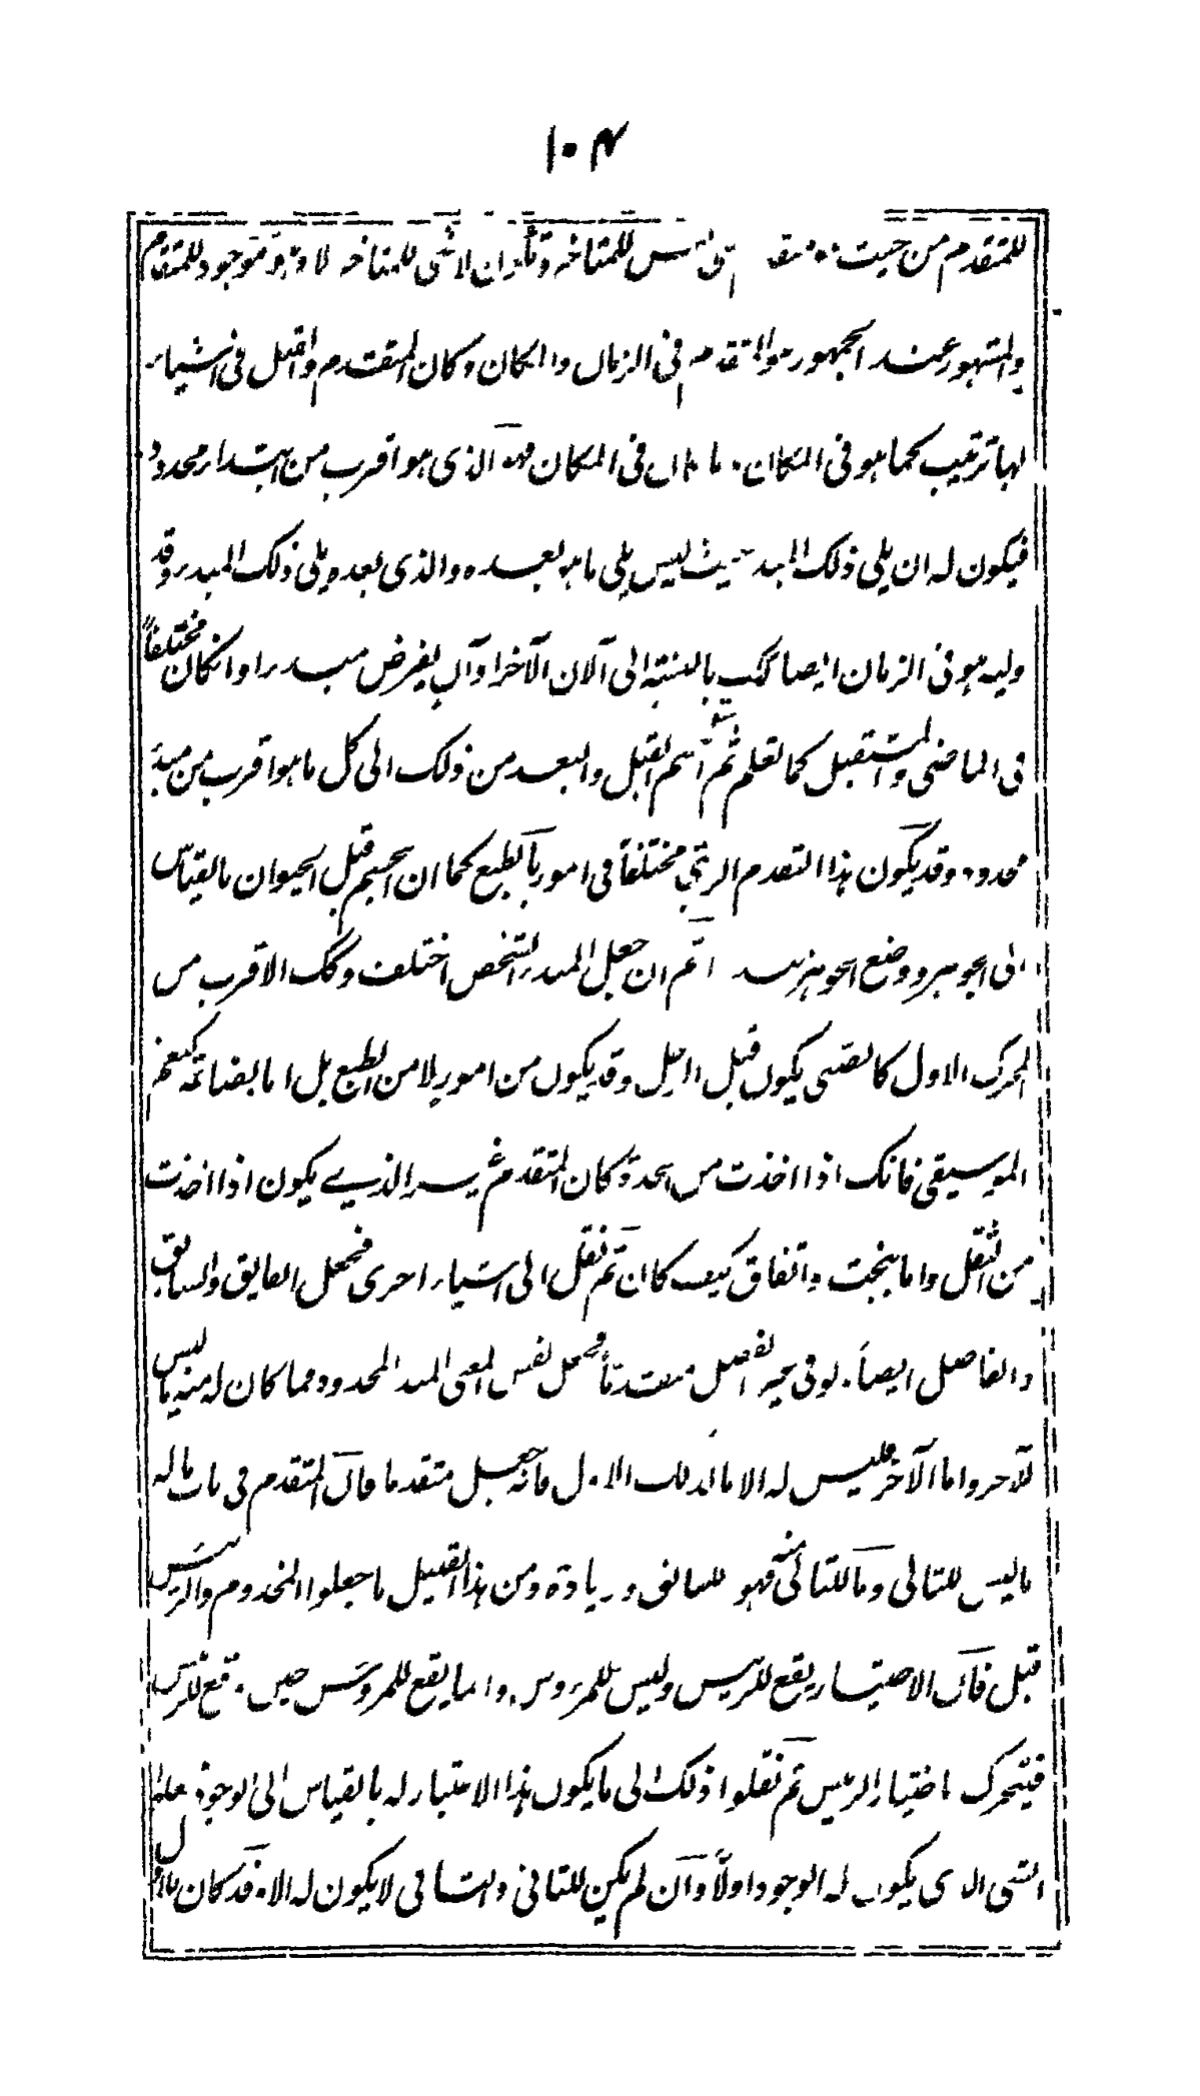 ١٠٤
للمتقدم من حيث للمتاخر وتكون ان لا شى للمتاخر الا وهو موجود للمتقدم
والمشهور عند الجمهور هو المتقدم فى الزمان والمكان وكان المتقدم والقبل فى اشياء
لها ترتيب كما هو فى المكان فى المكان فهو الذى هو اقرب من ابتداء محدود
فيكون له ان يلى ذلك المبدء حيث ليس يلى ما هو بعده والذى بعده يلى ذلك المبدء وقد
وليه هو فى الزمان ايضا كك بالنسبة الى الآن الآخر او آن يفرض مبدء او انكان مختلفاً
فى الماضى والمستقبل كما تعلم ثم اسم القبل والبعد من ذلك الى كل ما هو اقرب من مبدء
محدود وقد يكون هذا التقدم الرتبى مختلفاً فى امور بالطبع كما ان الجسم قبل الحيوان بالقياس
الى الجوهر ووضع الجوهر ثم ان جعل المبدء الشخص اختلف وكك الاقرب من
المحرك الاول كالصبى يكون قبل الرجل وقد يكون من امور لا من الطبع بل اما بصناعة كنغم
الموسيقى فانك اذا اخذت من الحدة كان المتقدم غير الذي يكون اذا اخذت
من الثقل واما ببخت واتفاق كيف كان ثم نقل الى اشياء اخرى فجعل الفايق والسابق
والفاضل ايضاً ولو فى غير الفضل متقدماً فجعل نفس المعنى المبدء المحدود فما كان له منه ما ليس
للآخر واما الآخر فليس له الا ما لذلك الاول فانه جعل متقدما فان المتقدم فى باب ما له
ما ليس للتالى وما للتالى منه فهو للسابق وزيادة ومن هذا القبيل ما جعلوا المخدوم والرئيس
قبل فان الاختيار يقع للرئيس وليس للمرؤس وانما يقع للمرؤس حين وقع للرئيس
فيتحرك باختيار الرئيس ثم نقلوا ذلك الى ما يكون هذا الاعتبار له بالقياس الى الوجود فجعلوا
الشى الذى يكون له الوجود اولاً وان لم يكن للثانى والثانى لا يكون له الا وقد كان للاول